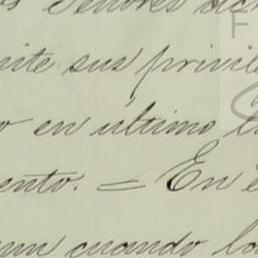 Señores
ite sus privile
o en último
ento. = En e
un cuando lo